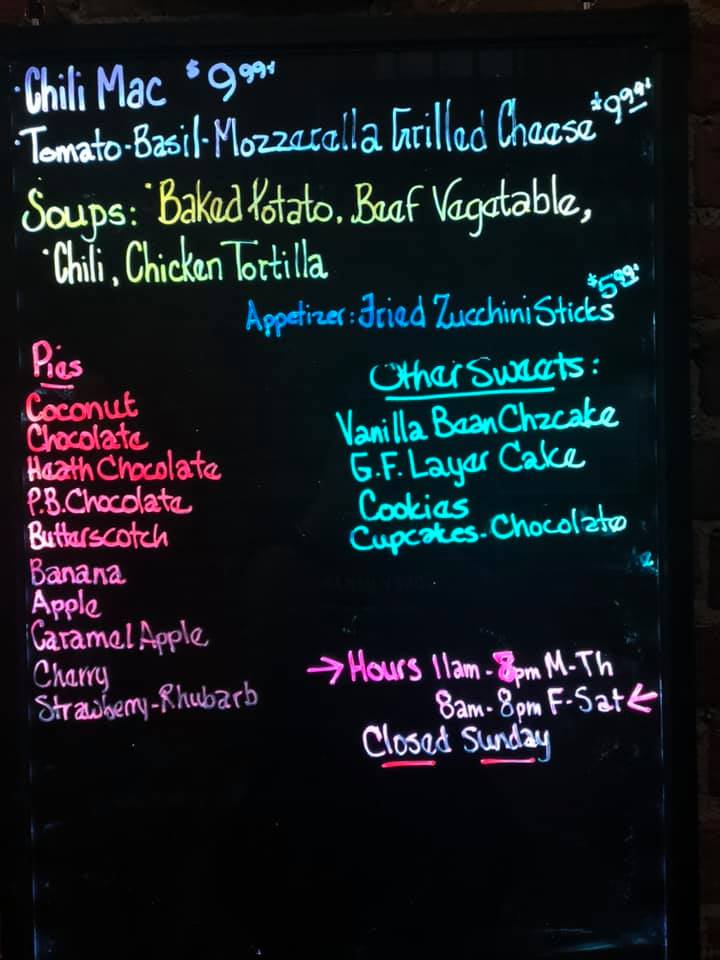 ·Chili Mac $9.99
·Tomato-Basil-Mozzarella Grilled Cheese $9.99
Soups: ·Baked Potato, Beef Vegetable,
·Chili, Chicken Tortilla
Appetizer: Fried Zucchini Sticks $5.99
Pies
Coconut
Chocolate
Heath Chocolate
P.B. Chocolate
Butterscotch
Banana
Apple
Caramel Apple
Cherry
Strawberry-Rhubarb
Other Sweets:
Vanilla Bean Chzcake
G.F. Layer Cake
Cookies
Cupcakes-Chocolate
→Hours 11am-8pm M-Th
8am-8pm F-Sat←
Closed Sunday